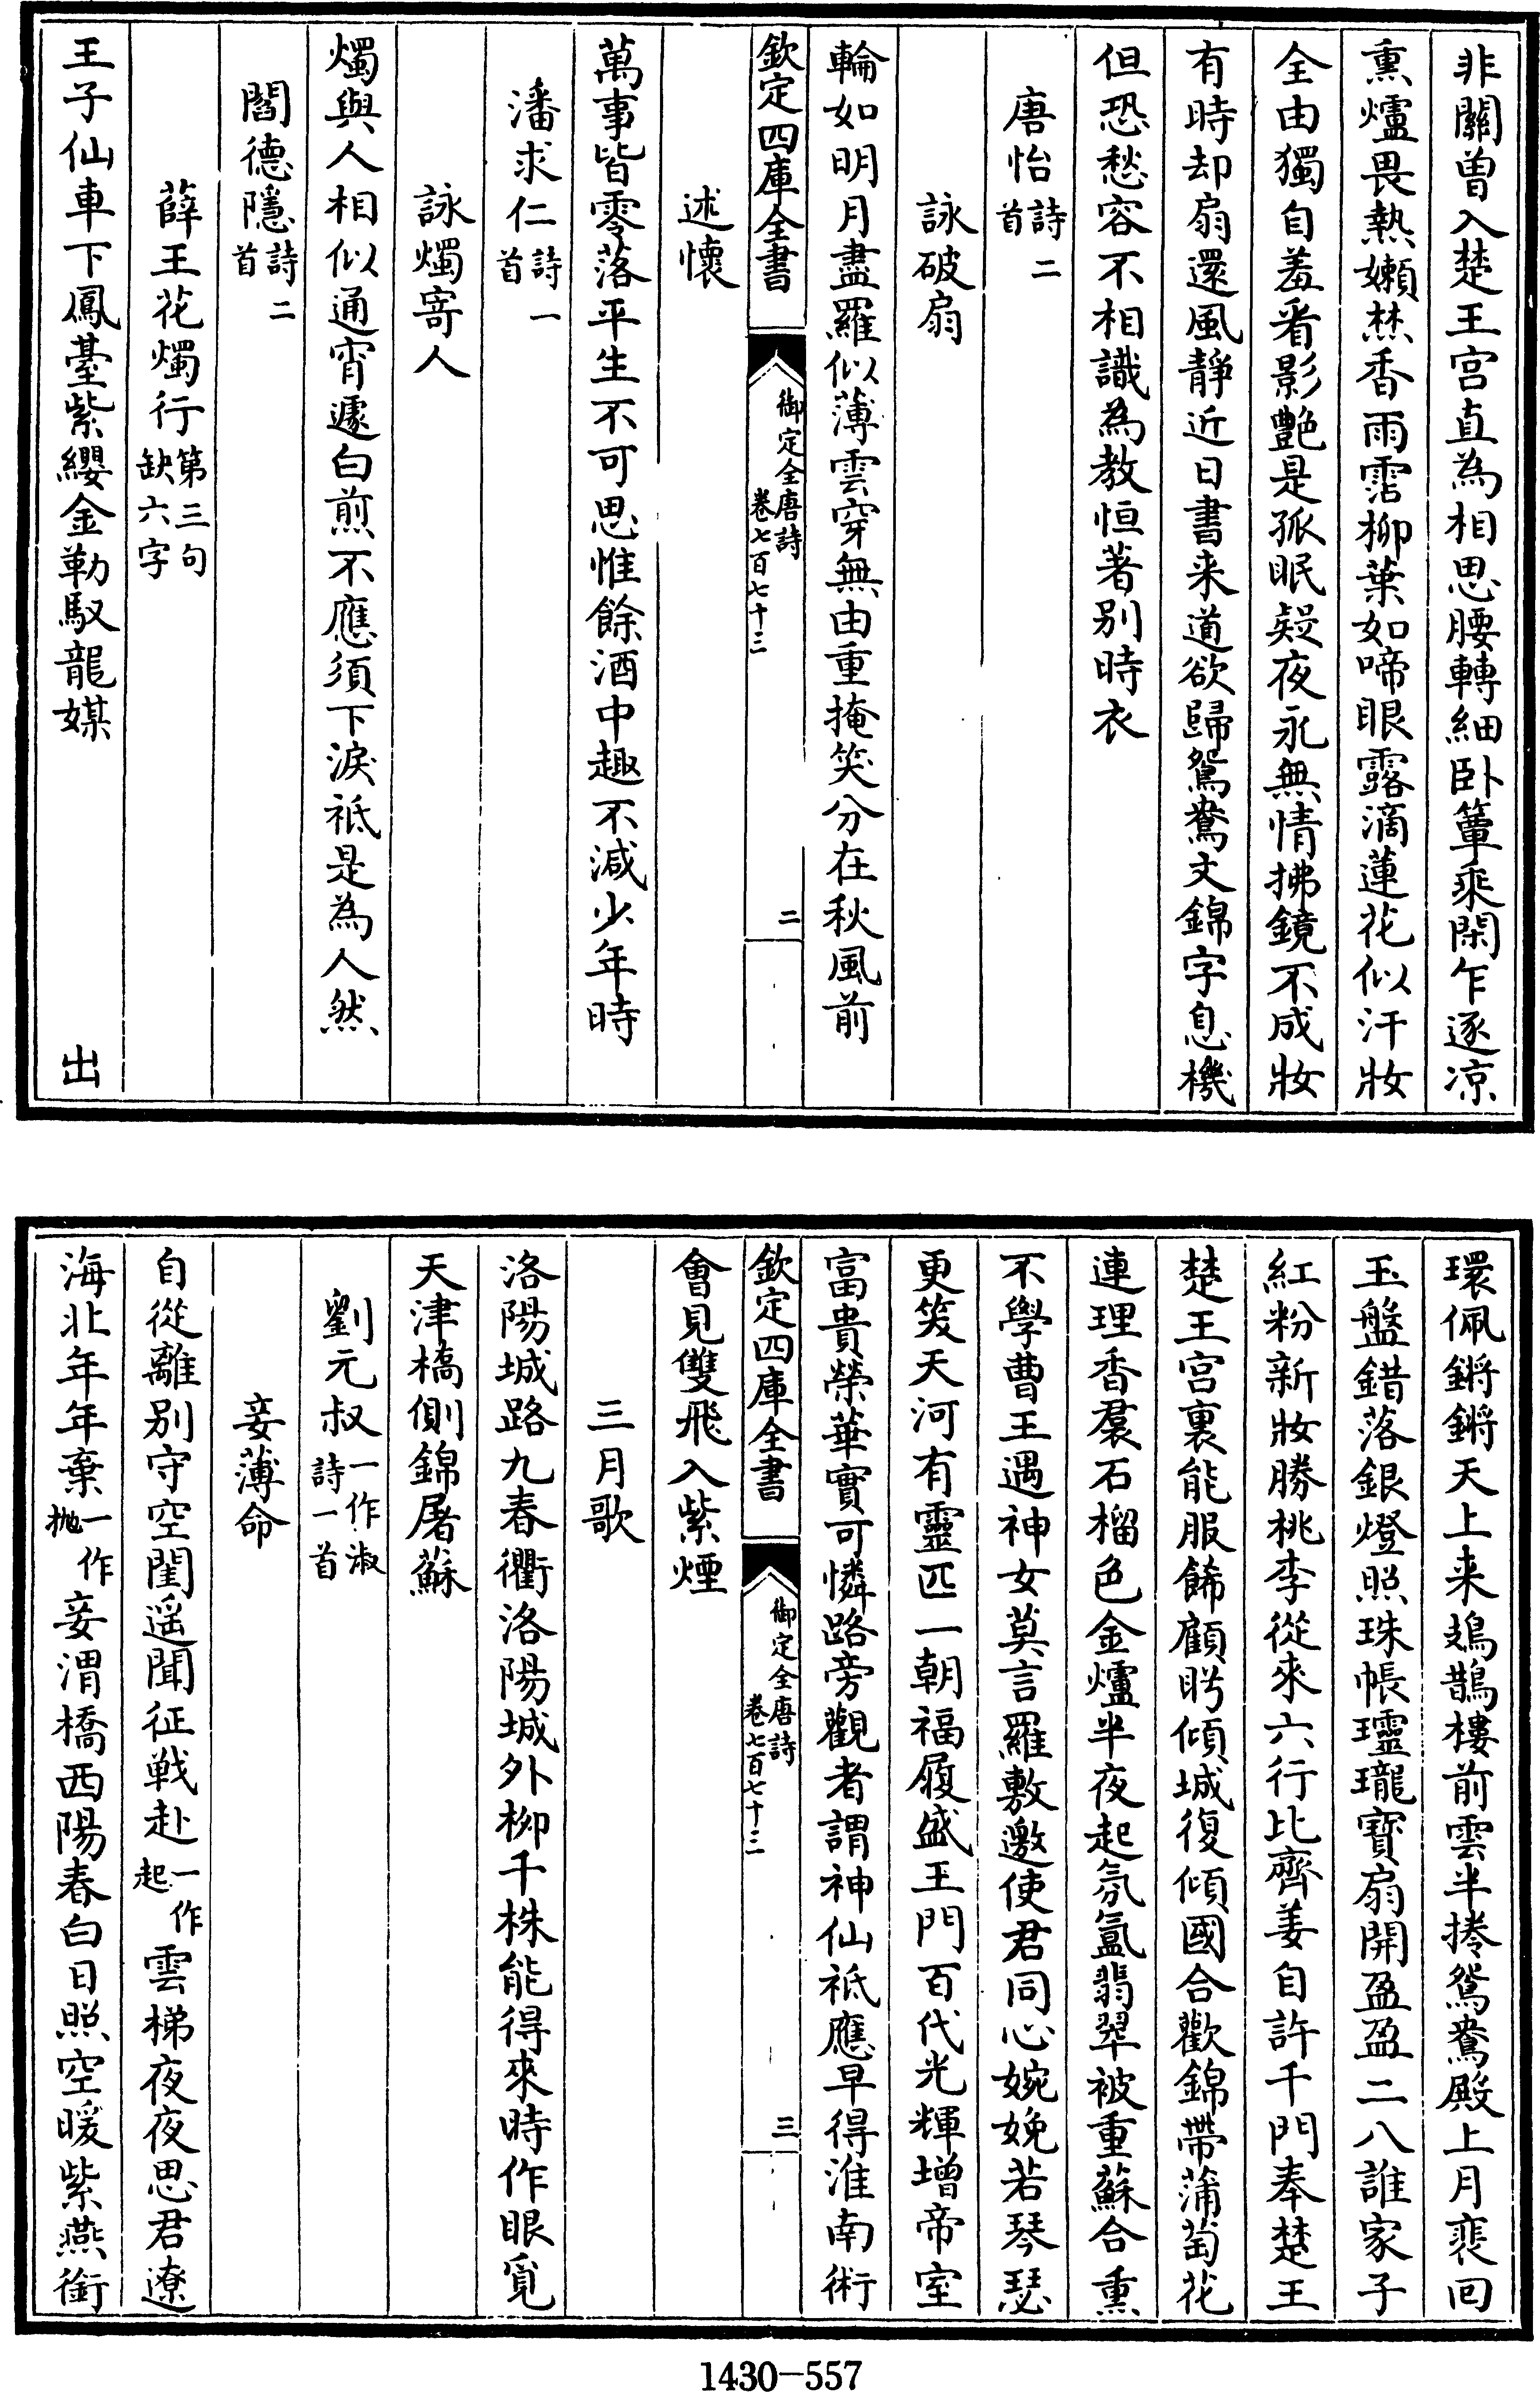 非關曽入楚王宫直為相思腰轉細卧簟乘閑乍逐凉
熏爐畏熱嬾焚香雨霑柳葉如啼眼露滴蓮花似汗妝
全由獨自羞看影艷是孤眠疑夜永無情拂鏡不成妝
有時却扇還風靜近日書来道欲歸鴛鴦文錦字息機
但恐愁容不相識為教恒著别時衣
唐怡詩二首
詠破扇
輪如明月盡羅似薄雲穿無由重掩笑分在秋風前
欽定四庫全書
御定全唐詩
卷七百七十三
二
述懷
萬事皆零落平生不可思惟餘酒中趣不減少年時
潘求仁詩一首
詠燭寄人
燭與人相似通宵遽白煎不應須下淚祇是為人然
閻德隱詩二首
薛王花燭行第三句缺六字
王子仙車下鳳臺紫纓金勒馭龍媒 出
環佩鏘鏘天上来鳷鵲樓前雲半捲鴛鴦殿上月裴回
玉盤錯落銀燈照珠帳瓏瓏寶扇開盈盈二八誰家子
紅粉新妝勝桃李從來六行比齊姜自許千門奉楚王
楚王宫裏能服飾顧眄傾城復傾國合歡錦帶蒲萄花
連理香羣石榴色金爐半夜起氛氳翡翠被重蘇合熏
不學曹王遇神女莫言羅敷邀使君同心婉娩若琴瑟
更笑天河有靈匹一朝福履盛王門百代光輝增帝室
富貴榮華實可憐路旁觀者謂神仙祇應早得淮南術
欽定四庫全書
御定全唐詩
卷七百七十三
三
會見雙飛入紫煙
三月歌
洛陽城路九春衢洛陽城外柳千株能得來時作眼覓
天津橋側錦屠蘇
劉元叔一作淑詩一首
妾薄命
自從離别守空閨遥聞征戰赴一作起雲梯夜夜思君遼
海北年年棄一作抛妾渭橋西陽春白日照空暖紫燕銜
1430-557